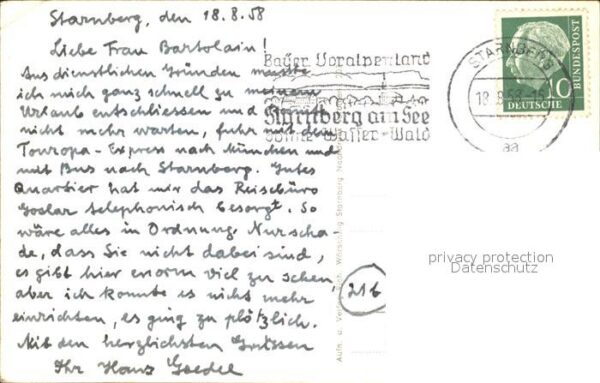 Starnberg, den 18.8.58
Liebe Frau Bartolain!
Aus dienstlichen Gründen musste
ich mich ganz schnell zu meinem
Urlaub entschliessen und
nicht mehr warten, fuhr mit dem
Touropa-Express nach München und
mit Bus nach Starnberg. Gutes
Quartier hat mir das Reisebüro
Goslar telephonisch besorgt. So
wäre alles in Ordnung. Nur scha-
de, dass Sie nicht dabei sind,
es gibt hier enorm viel zu sehen,
aber ich konnte es nicht mehr
einrichten, es ging zu plötzlich.
Mit den herzlichsten Grüssen
Ihr Hans Goedel
Bayer. Voralpenland
Starnberg am See
Sonne-Wasser-Wald
STARNBERG
18.8.58-15
aa
10
DEUTSCHE
BUNDESPOST
216
privacy protection
Datenschutz